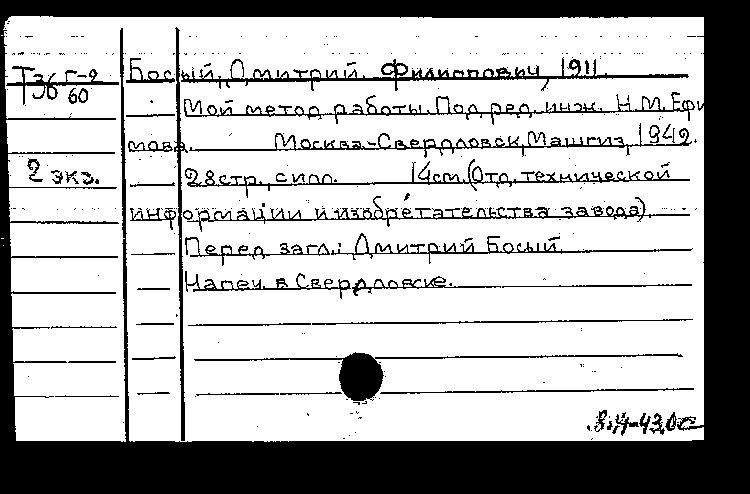 Т36 Г-2/60 Босый, Дмитрий Филиппович, 1911.
Мой метод работы. Под ред. инж. Н.М. Ефи
мова. Москва-Свердловск, Машгиз, 1942.
2 экз. 28стр., с илл. 14cm. (Отд. технической
информации и изобретательства завода)
Перед загл.: Дмитрий Босый.
Напеч. в Свердловске.